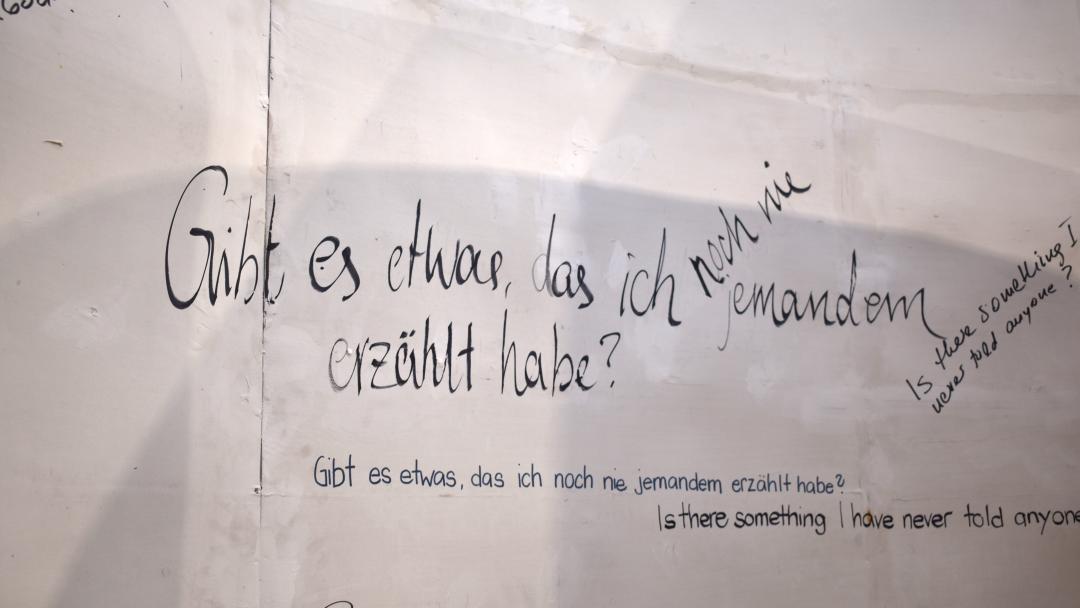 Gibt es etwas, das ich noch nie jemandem
erzählt habe?
Is there something I
never told anyone?
Gibt es etwas, das ich noch nie jemandem erzählt habe?
Is there something I have never told anyone